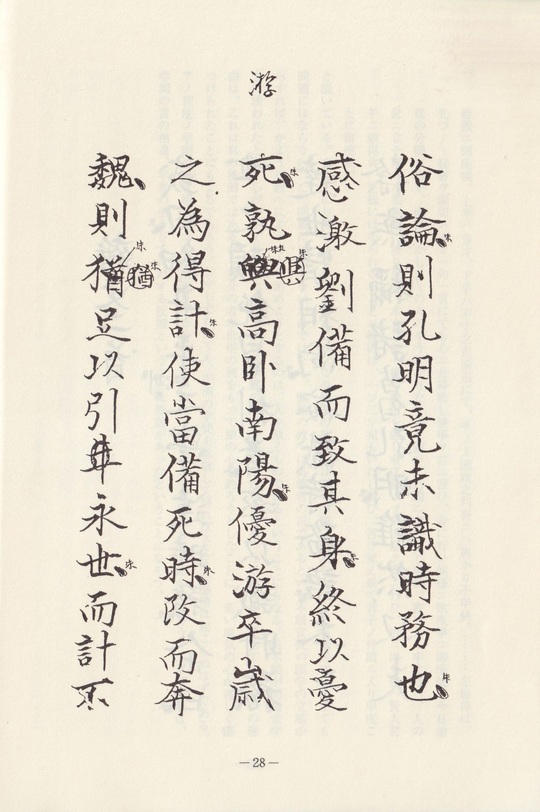 游
俗論則孔明竟未識時務也
感激劉備而致其身終以憂
死孰興與高卧南陽優游卒歲
之為得計使當備死時改而奔
魏則猶猶足以引年永世而計不
朱
朱
朱
朱
朱
朱
朱
朱
朱
—28—